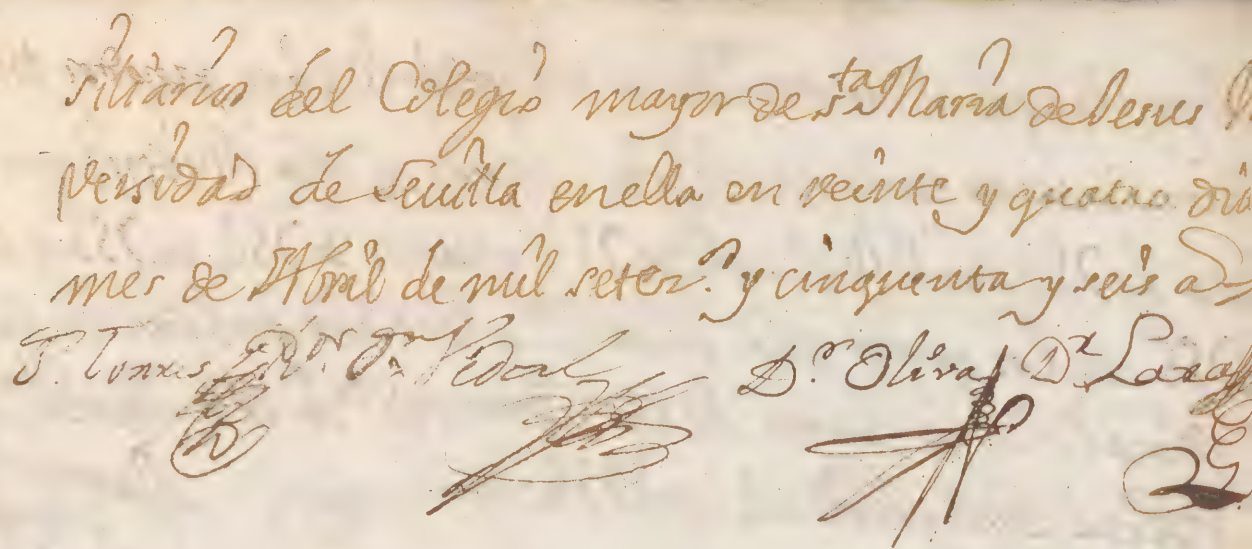 siliarios del Colegio mayor de sta Maria de Jesus
versidad de Sevilla en ella en veinte y quatro dia
mes de Abril de mil setez.s y cinquenta y seis a
Dor Dn Vidal Dor Oliva Dr